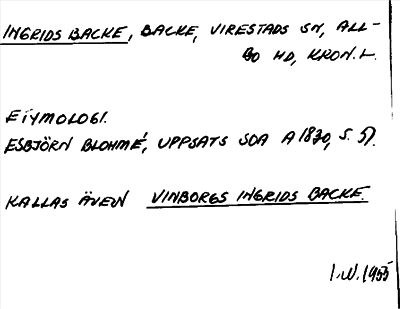 INGRIDS BACKE, BACKE, VIRESTADS SN, ALL-
BO HD, KRON. L.
ETYMOLOGI.
ESBJÖRN BLOHMÉ, UPPSATS SOA A 1830, S. 51.
KALLAS ÄVEN VINBORGS INGRIDS BACKE.
I.W. 1955